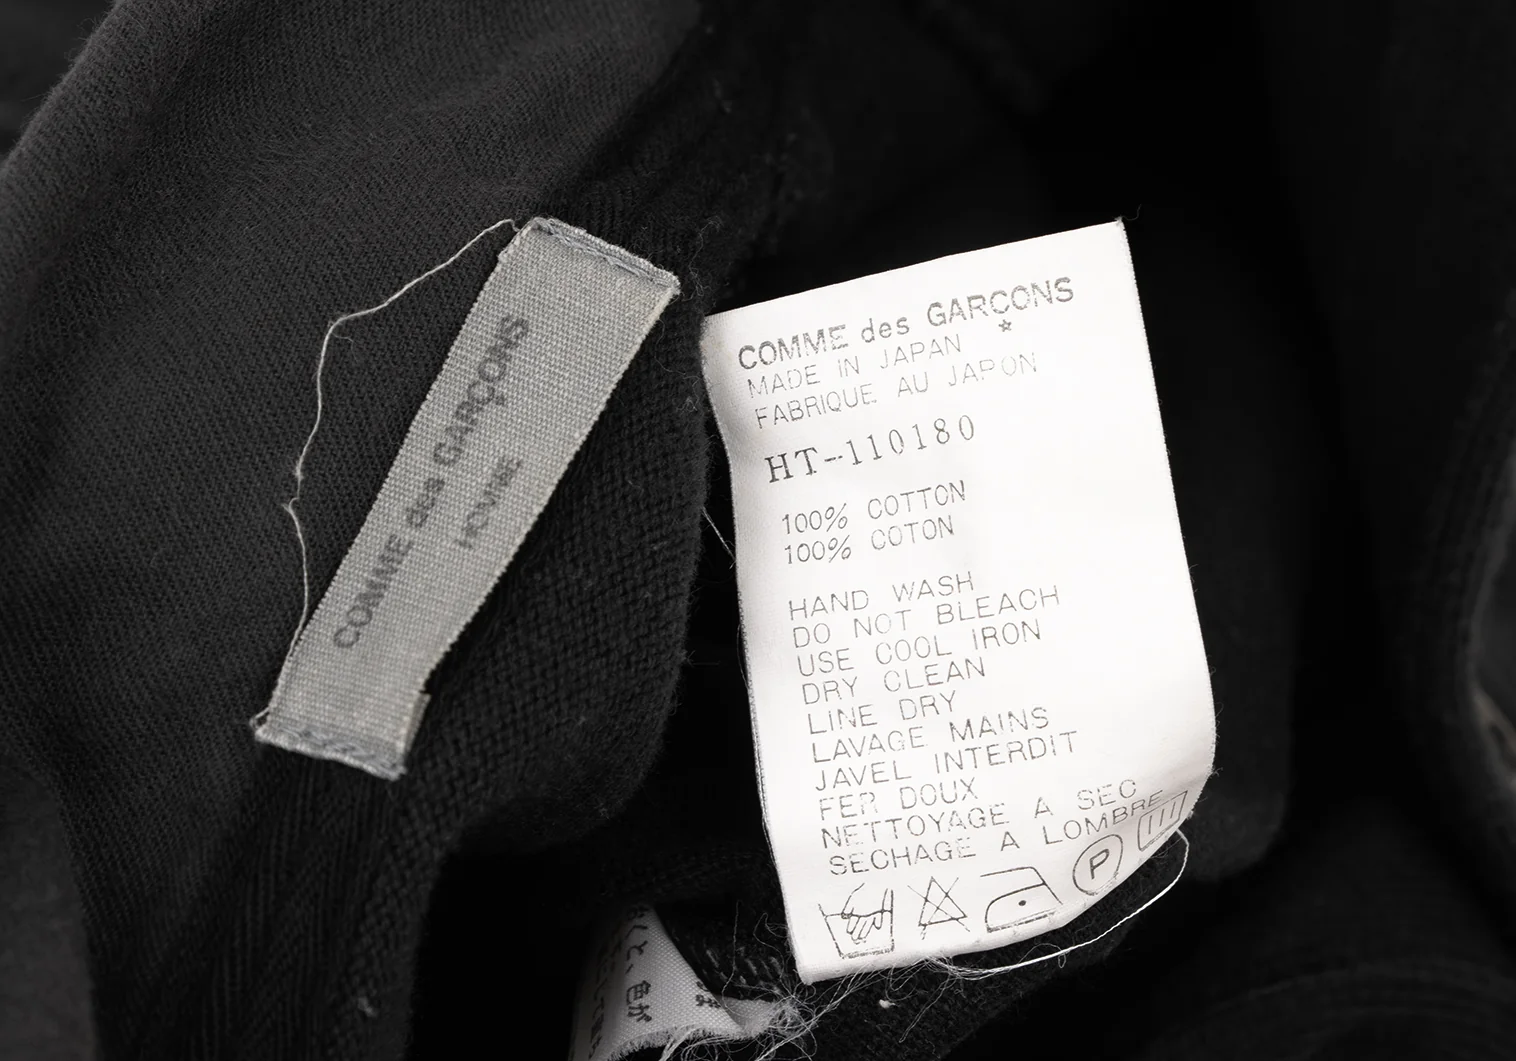 COMME des GARÇONS
HOMME
COMME des GARÇONS
MADE IN JAPAN
FABRIQUE AU JAPON
HT-110180
100% COTTON
100% COTON
HAND WASH
DO NOT BLEACH
USE COOL IRON
DRY CLEAN
LINE DRY
LAVAGE MAINS
JAVEL INTERDIT
FER DOUX
NETTOYAGE A SEC
SECHAGE A LOMBRE
P
色が